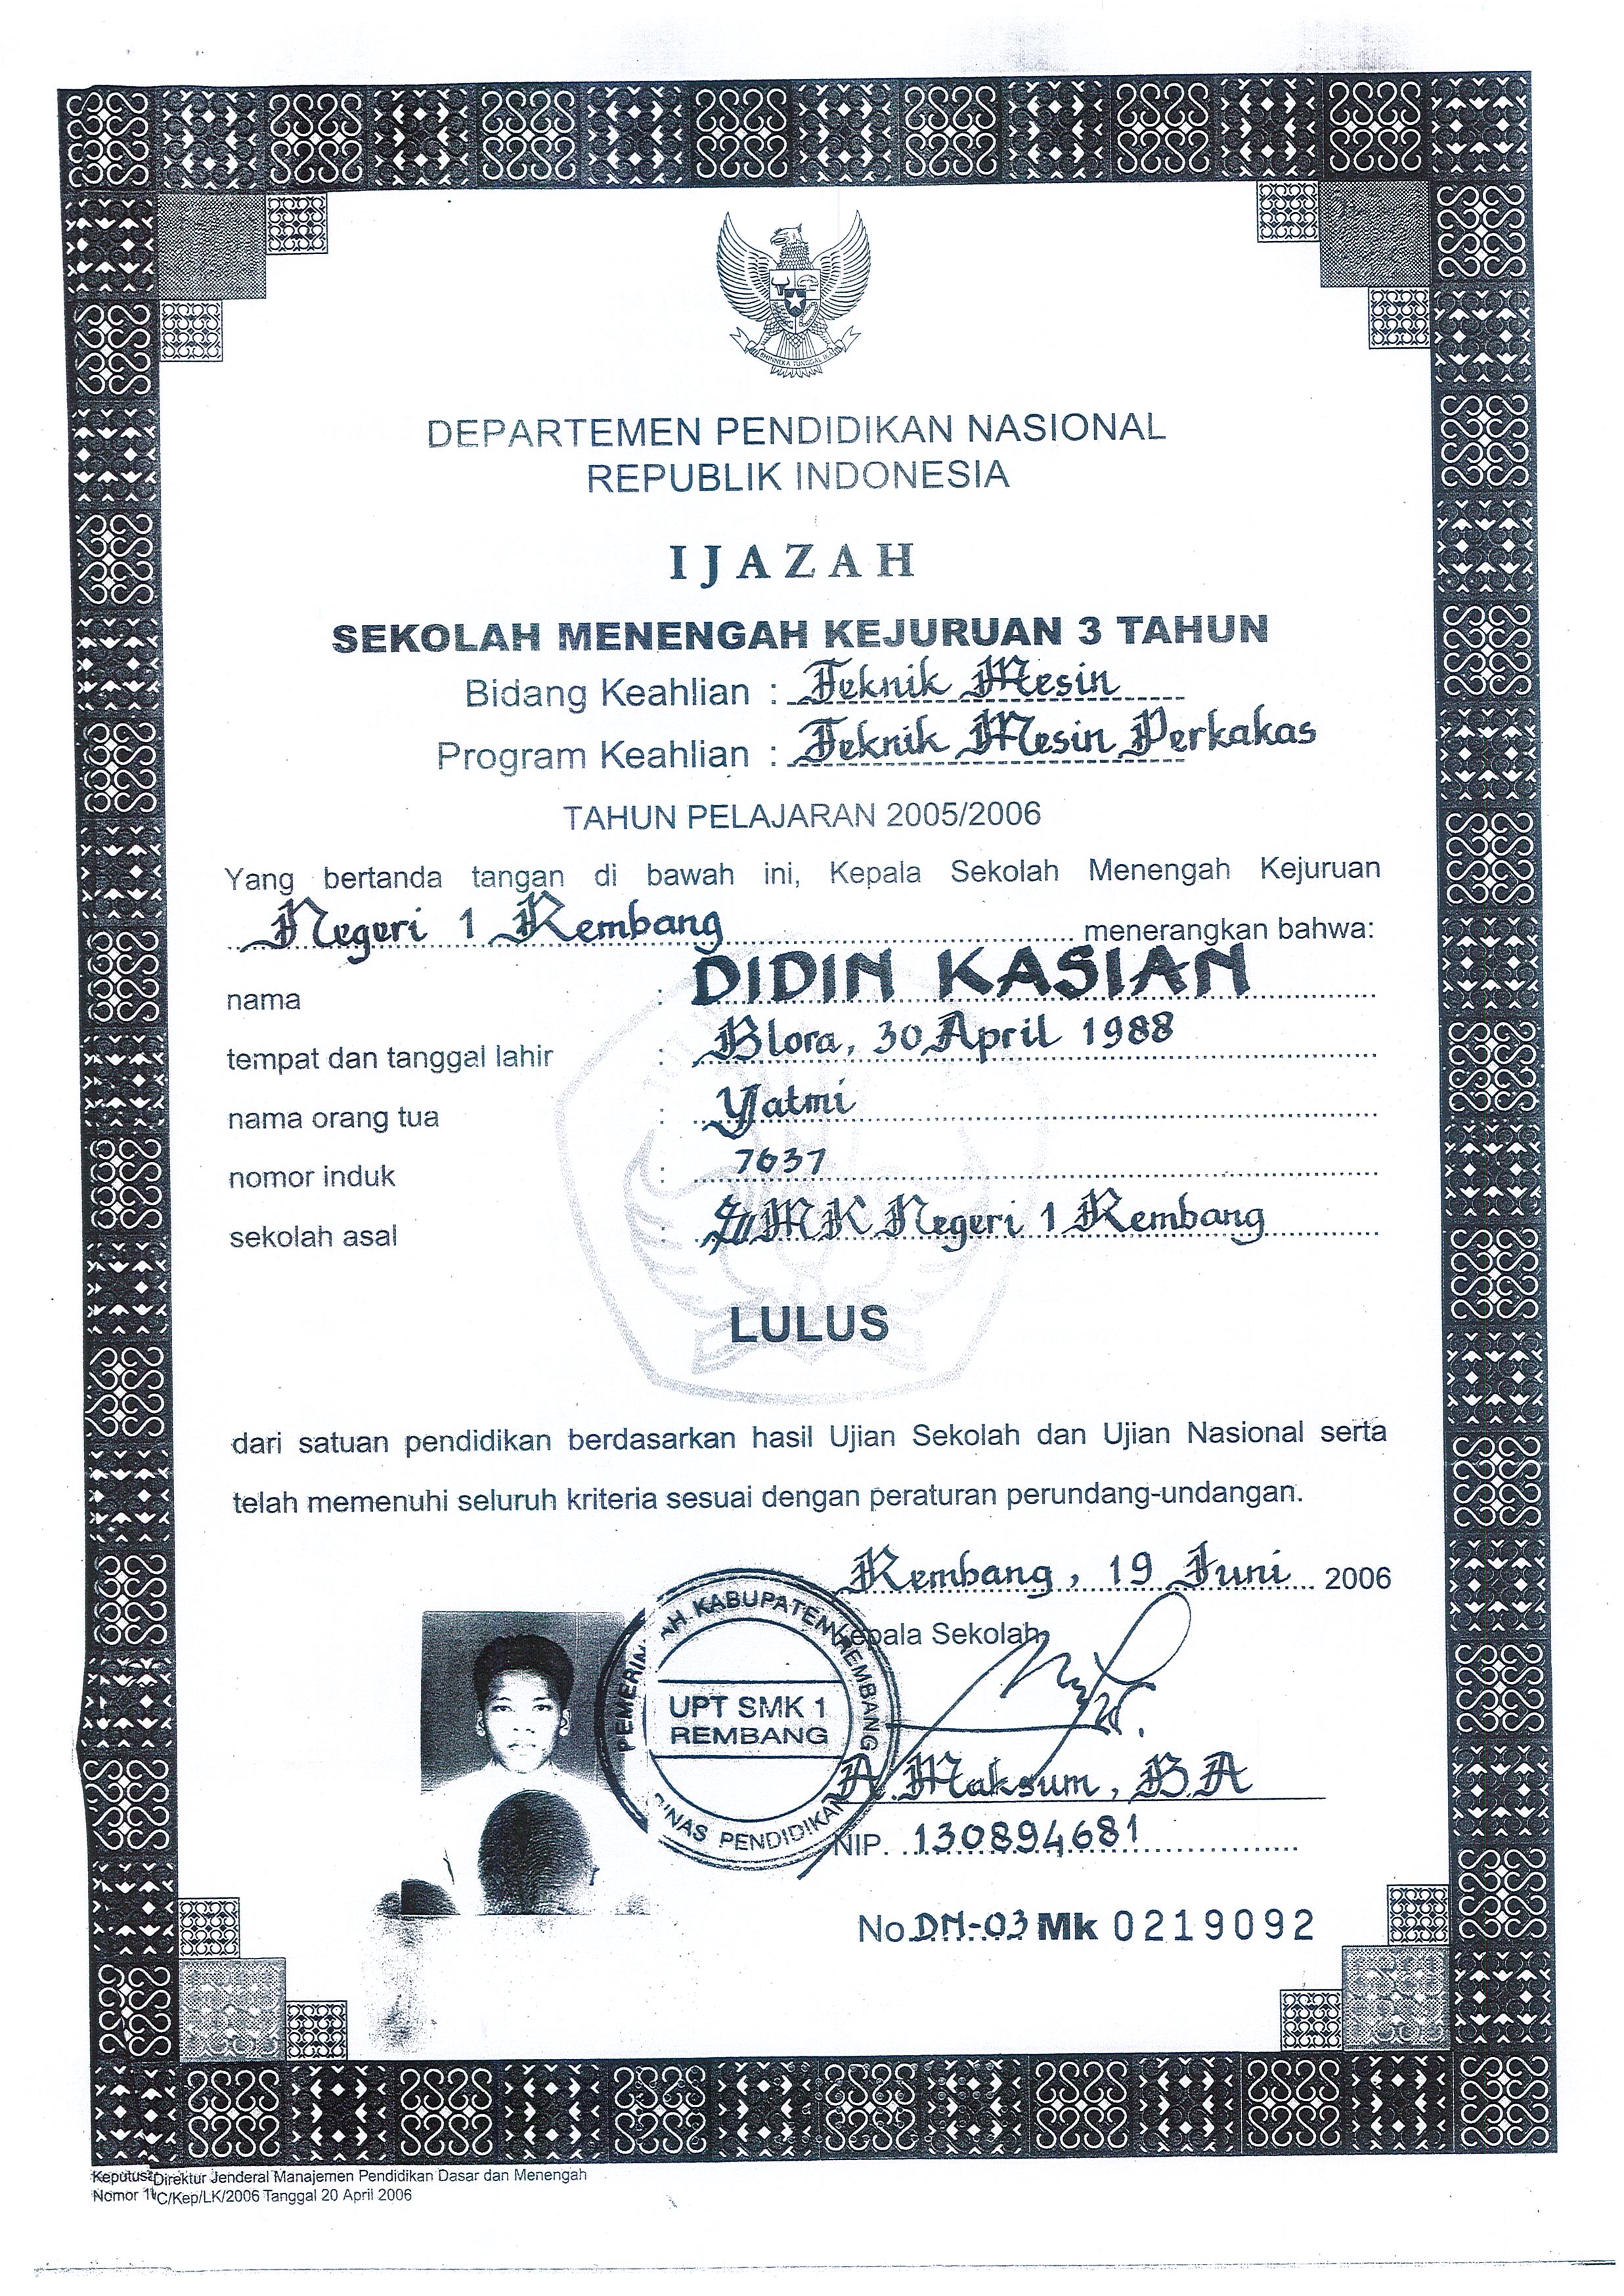 BHINNEKA TUNGGAL IKA
DEPARTEMEN PENDIDIKAN NASIONAL
REPUBLIK INDONESIA
IJAZAH
SEKOLAH MENENGAH KEJURUAN 3 TAHUN
Bidang Keahlian : Teknik Mesin
Program Keahlian : Teknik Mesin Perkakas
TAHUN PELAJARAN 2005/2006
Yang bertanda tangan di bawah ini, Kepala Sekolah Menengah Kejuruan
Negeri 1 Rembang menerangkan bahwa:
nama : DIDIN KASIAN
tempat dan tanggal lahir : Blora, 30 April 1988
nama orang tua : Yatmi
nomor induk : 7637
sekolah asal : SMK Negeri 1 Rembang
LULUS
dari satuan pendidikan berdasarkan hasil Ujian Sekolah dan Ujian Nasional serta
telah memenuhi seluruh kriteria sesuai dengan peraturan perundang-undangan.
Rembang, 19 Juni 2006
Kepala Sekolah
PEMERIN AH KABUPATEN REMBANG
UPT SMK 1
REMBANG
DINAS PENDIDIKAN
A. Maksum, BA
NIP. 130894681
No DN-03 Mk 0219092
Direktur Jenderal Manajemen Pendidikan Dasar dan Menengah
Nomor C/Kep/LK/2006 Tanggal 20 April 2006